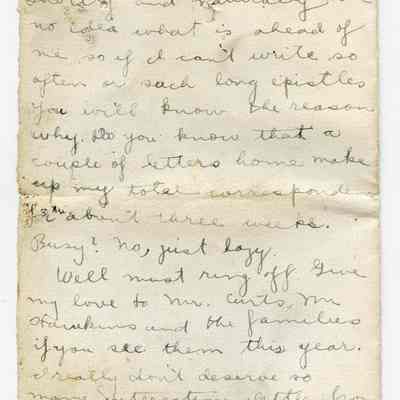 and naturally
no idea what is ahead of
me so if I can't write so
often or such long epistles
you will know the reason
why. Do you know that a
couple of letters home make
up my total corresponden
for about three weeks.
Busy? No, just lazy.
Well must ring off. Give
my love to Mr. Curts, Mr
Hawkins and the families
if you see them this year.
I really don't deserve so
many interesting letters from